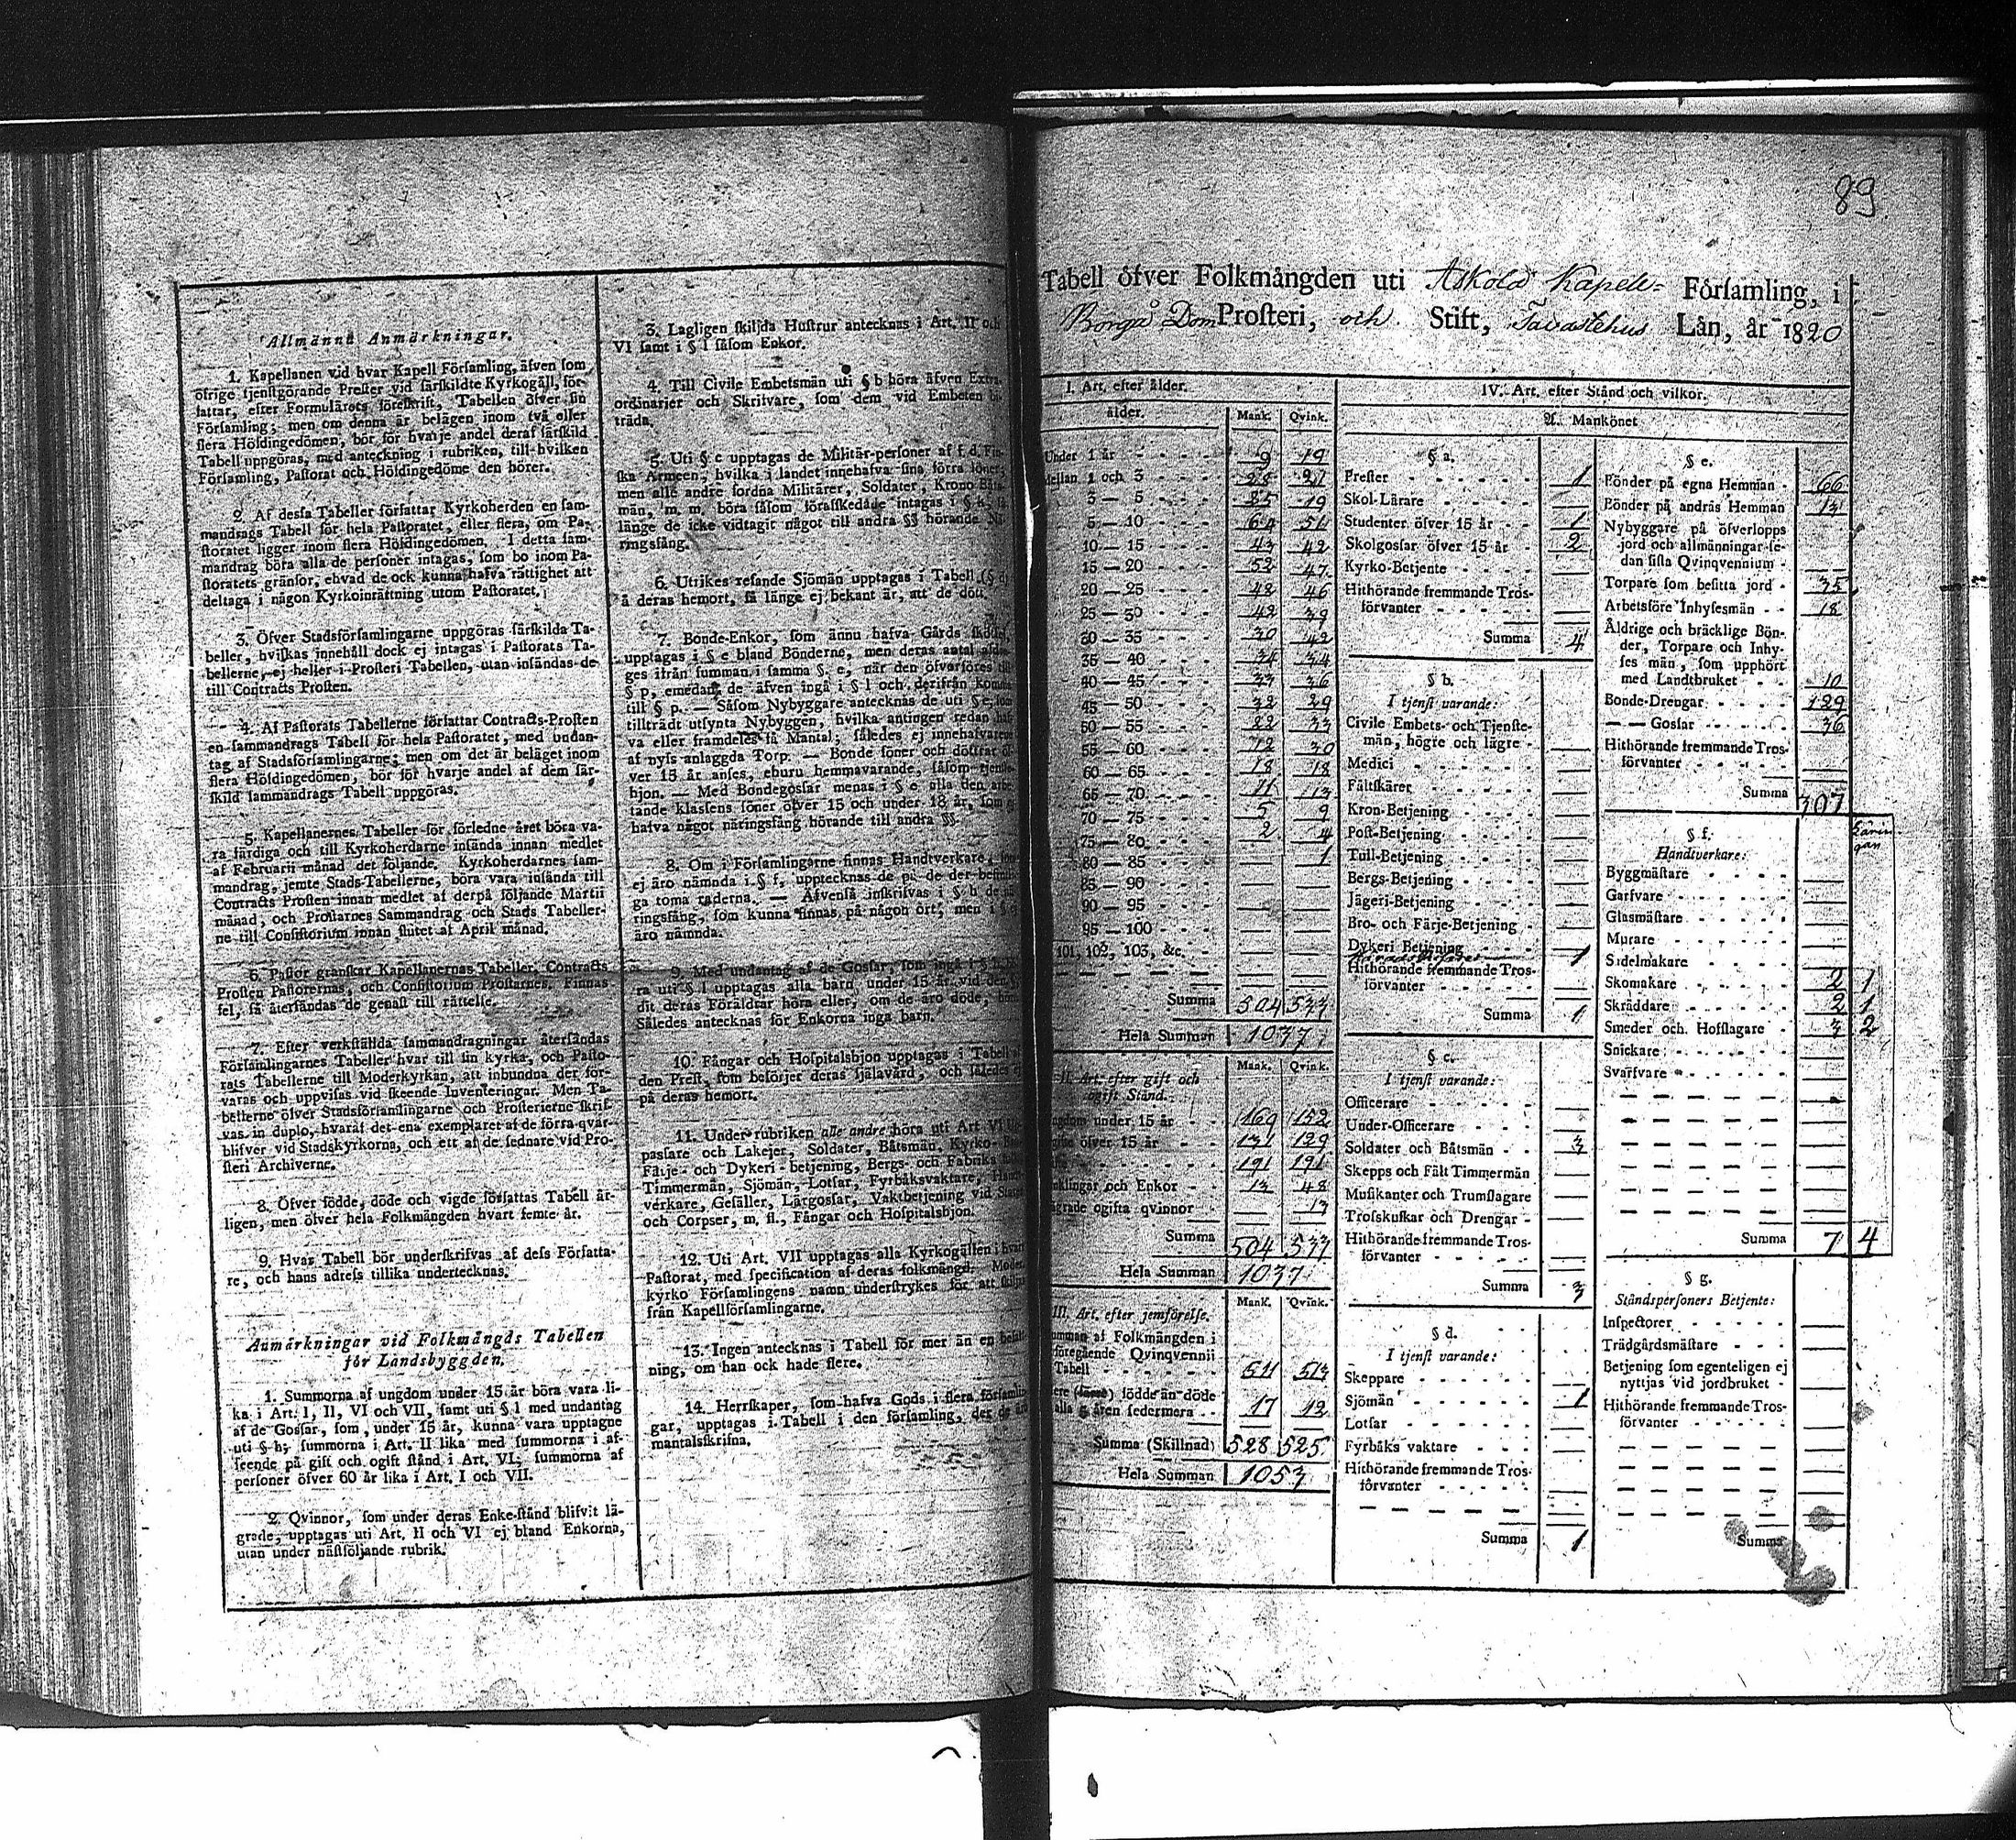 Allmänna Anmärkningar.
1. Kapellanen vid hvar Kapell Församling, äfven som
öfrige tjenstgörande Prester vid särskildte Kyrkogäll, för-
fattar, efter Formulärets föreskrift, Tabellen öfver sin
Församling; men om denna är belägen inom två eller
flera Höfdingedömen, bör för hvarje andel deraf särskild
Tabell uppgöras, med anteckning i rubriken, till hvilken
Församling, Pastorat och Höfdingedöme den hörer.
2. Af dessa Tabeller författar Kyrkoherden en sam-
mandrags Tabell för hela Pastoratet, eller flera, om Pa-
storatet ligger inom flera Höfdingedömen. I detta sam-
mandrag böra alla de personer intagas, som bo inom Pa-
storatets gränsor, ehvad de ock kunna hafva rättighet att
deltaga i någon Kyrkoinrättning utom Pastoratet.
3. Öfver Stadsförsamlingarne uppgöras särskilda Ta-
beller, hvilkas innehåll dock ej intagas i Pastorats Ta-
bellerne, ej heller i Prosteri Tabellen, utan insändas de
till Contracts Prosten.
4. Af Pastorats Tabellerne författar Contracts-Prosten
en sammandrags Tabell för hela Pastoratet, med undan-
tag af Stadsförsamlingarne; men om det är beläget inom
flera Höfdingedömen, bör för hvarje andel af dem sär-
skild sammandrags Tabell uppgöras.
5. Kapellanernes Tabeller för förledne året böra va-
ra färdiga och till Kyrkoherdarne insända innan medlet
af Februarii månad det följande. Kyrkoherdarnes sam-
mandrag, jemte Stads-Tabellerne, böra vara insända till
Contracts Prosten innan medlet af derpå följande Martii
månad, och Prostarnes Sammandrag och Stads Tabeller-
ne till Consistorium innan slutet af April månad.
6. Pastor granskar Kapellanernas Tabeller, Contracts
Prosten Pastorernas, och Consistorium Prostarnes. Finnas
fel, så återsändas de genast till rättelse.
7. Efter verkställda sammandragningar återsändas
Församlingarnes Tabeller hvar till sin kyrka, och Pasto-
rats Tabellerne till Moderkyrkan, att inbundna der för-
varas och uppvisas vid skeende Inventeringar. Men Ta-
bellerne öfver Stadsförsamlingarne och Prosterierne skrif-
vas in duplo, hvaraf det ena exemplaret af de förra qvar-
blifver vid Stadskyrkorna, och ett af de sednare vid Pro-
steri Archiverne.
8. Öfver födde, döde och vigde författas Tabell år-
ligen, men öfver hela Folkmängden hvart femte år.
9. Hvar Tabell bör underskrifvas af dess Författa-
re, och hans adress tillika undertecknas.
Anmärkningar vid Folkmängds Tabellen
för Landsbyggden.
1. Summorna af ungdom under 15 år böra vara li-
ka i Art. I, II, VI och VII, samt uti § l med undantag
af de Gossar, som, under 15 år, kunna vara upptagne
uti § h; summorna i Art. II lika med summorna i af-
seende på gift och ogift stånd i Art. VI; summorna af
personer öfver 60 år lika i Art. I och VII.
2. Qvinnor, som under deras Enke-stånd blifvit lä-
grade, upptagas uti Art. II och VI ej bland Enkorna,
utan under nästföljande rubrik.
3. Lagligen skiljda Hustrur antecknas i Art. II och
VI samt i § l såsom Enkor.
4. Till Civile Embetsmän uti § b höra äfven Extra
ordinarier och Skrifvare, som dem vid Embeten bi-
träda.
5. Uti § c upptagas de Militär-personer af f. d. Fin-
ska Armeen, hvilka i landet innehafva sina förra löner;
men alle andre fordna Militärer, Soldater, Krono Båts-
män, m. m. böra såsom förafskedade intagas i § h, så
länge de icke vidtagit något till andra §§ hörande Nä-
ringsfång.
6. Utrikes resande Sjömän upptagas i Tabell (§ d)
å deras hemort, så länge ej bekant är, att de dött.
7. Bonde-Enkor, som ännu hafva Gårds skötsel,
upptagas i § e bland Bönderne, men deras antal afdra-
ges ifrån summan i samma §. e, när den öfverföres till
§ p, emedan de äfven ingå i § l och derifrån komma
till § p. — Såsom Nybyggare antecknas de uti § e, som
tillträdt utsynta Nybyggen, hvilka antingen redan haf-
va eller framdeles få Mantal; således ej innehafvarene
af nyss anlaggda Torp. — Bonde söner och döttrar öf-
ver 15 år anses, ehuru hemmavarande, såsom tjenste-
hjon. — Med Bondegossar menas i § e alla den arbe-
tande klassens söner öfver 15 och under 18 år, som ej
hafva något näringsfång hörande till andra §§.
8. Om i Församlingarne finnas Handtverkare, som
ej äro nämnda i § f, upptecknas de på de der befintli-
ga toma raderna. — Äfvenså inskrifvas i § h de nä-
ringsfång, som kunna finnas på någon ort, men i § g
äro nämnda.
9. Med undantag af de Gossar, som ingå i
ra uti § l upptagas alla barn, under 15 år, vid den §,
dit deras Föräldrar höra eller, om de äro döde, hört.
Således antecknas för Enkorna inga barn.
10. Fångar och Hospitalshjon upptagas i Tabell af
den Prest, som besörjer deras själavård, och således ej
på deras hemort.
11. Under rubriken alle andre höra uti Art VI Up-
passare och Lakejer, Soldater, Båtsmän, Kyrko-
Färje- och Dykeri-betjening, Bergs- och Fabriks
Timmermän, Sjömän, Lotsar, Fyrbåksvaktare, Handt-
verkare, Gesäller, Lärgossar, Vaktbetjening vid
och Corpser, m. fl., Fångar och Hospitalshjon.
12. Uti Art. VII upptagas alla Kyrkogällen i hvart
Pastorat, med specification af deras folkmängd. Moder-
kyrko Församlingens namn understrykes för att skiljas
från Kapellförsamlingarne.
13. Ingen antecknas i Tabell för mer än en befatt-
ning, om han ock hade flere.
14. Herrskaper, som hafva Gods i flera församlin-
gar, upptagas i Tabell i den församling, der de äro
mantalsskrifna.
89.
Tabell öfver Folkmängden uti Askola Kapells Församling, i
Borgå Dom Prosteri, och Stift, Tavastehus Län, år 1820
I. Art. efter ålder.
ålder. Mank. Qvink.
Under 1 år 9 19
Mellan 1 och 3 28 21
3 — 5 85 19
5 — 10 64 51
10 — 15 43 42
15 — 20 52 47
20 — 25 48 46
25 — 30 42 39
30 — 35 30 42
35 — 40 34 34
40 — 45 33 36
45 — 50 32 29
50 — 55 22 33
55 — 60 12 30
60 — 65 18 18
65 — 70 11 13
70 — 75 5 9
75 — 80 2 4
80 — 85 — 1
85 — 90
90 — 95
95 — 100
101, 102, 103, &c.
Summa 504 533
Hela Summan 1037
II. Art. efter gift och
ogift Stånd. Mank. Qvink.
ngdom under 15 år 169 152
ogifte öfver 15 år 131 129
191 191
nklingar och Enkor 13 48
ägrade ogifta qvinnor — 13
Summa 504 533
Hela Summan 1037
III. Art. efter jemförelse. Mank. Qvink.
umman af Folkmängden i
föregående Qvinqvennii
Tabell 511 513
ere födde än döde
alla 5 åren sedermera 17 12
Summa (Skillnad) 528 525
Hela Summan 1053
IV. Art. efter Stånd och vilkor.
A. Mankönet
§ a.
Prester 1
Skol-Lärare
Studenter öfver 15 år 1
Skolgossar öfver 15 år 2
Kyrko-Betjente
Hithörande fremmande Tros-
förvanter
Summa 4
§ b.
I tjenst varande:
Civile Embets- och Tjenste-
män, högre och lägre
Medici
Fältskärer
Kron-Betjening
Post-Betjening
Tull-Betjening
Bergs-Betjening
Jägeri-Betjening
Bro- och Färje-Betjening
Dykeri Betjening
1
Hithörande fremmande Tros-
förvanter
Summa 1
§ c.
I tjenst varande:
Officerare
Under-Officerare
Soldater och Båtsmän 3
Skepps och Fält Timmermän
Musikanter och Trumslagare
Trosskuskar och Drengar
Hithörande fremmande Tros-
förvanter
Summa 3
§ d.
I tjenst varande:
Skeppare
Sjömän 1
Lotsar
Fyrbåks vaktare
Hithörande fremmande Tros-
förvanter
Summa 1
§ e.
Bönder på egna Hemman 66
Bönder på andras Hemman 13
Nybyggare på öfverlopps
jord och allmänningar se-
dan sista Qvinqvennium
Torpare som besitta jord 35
Arbetsföre Inhysesmän 18
Åldrige och bräcklige Bön-
der, Torpare och Inhy-
ses män, som upphört
med Landtbruket 10
Bonde-Drengar 129
— — Gossar 36
Hithörande fremmande Tros-
förvanter
Summa 307
§ f.
Handtverkare:
Byggmästare
Garfvare
Glasmästare
Murare
Sadelmakare
Skomakare 2 1
Skräddare 2 1
Smeder och Hofslagare 3 2
Snickare
Svarfvare
Summa 7 4
§ g.
Ståndspersoners Betjente:
Inspectorer
Trädgårdsmästare
Betjening som egenteligen ej
nyttjas vid jordbruket
Hithörande fremmande Tros-
förvanter
Summa